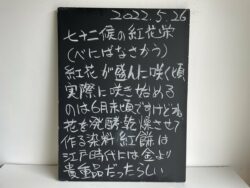 2022.5.26
七十二候の紅花栄
(べにばなさかう)
紅花が盛んに咲く頃
実際に咲き始める
のは6月末頃ですけどね
花を発酵乾燥させて
作る染料紅餅は
江戸時代には金より
貴重品だったらしい